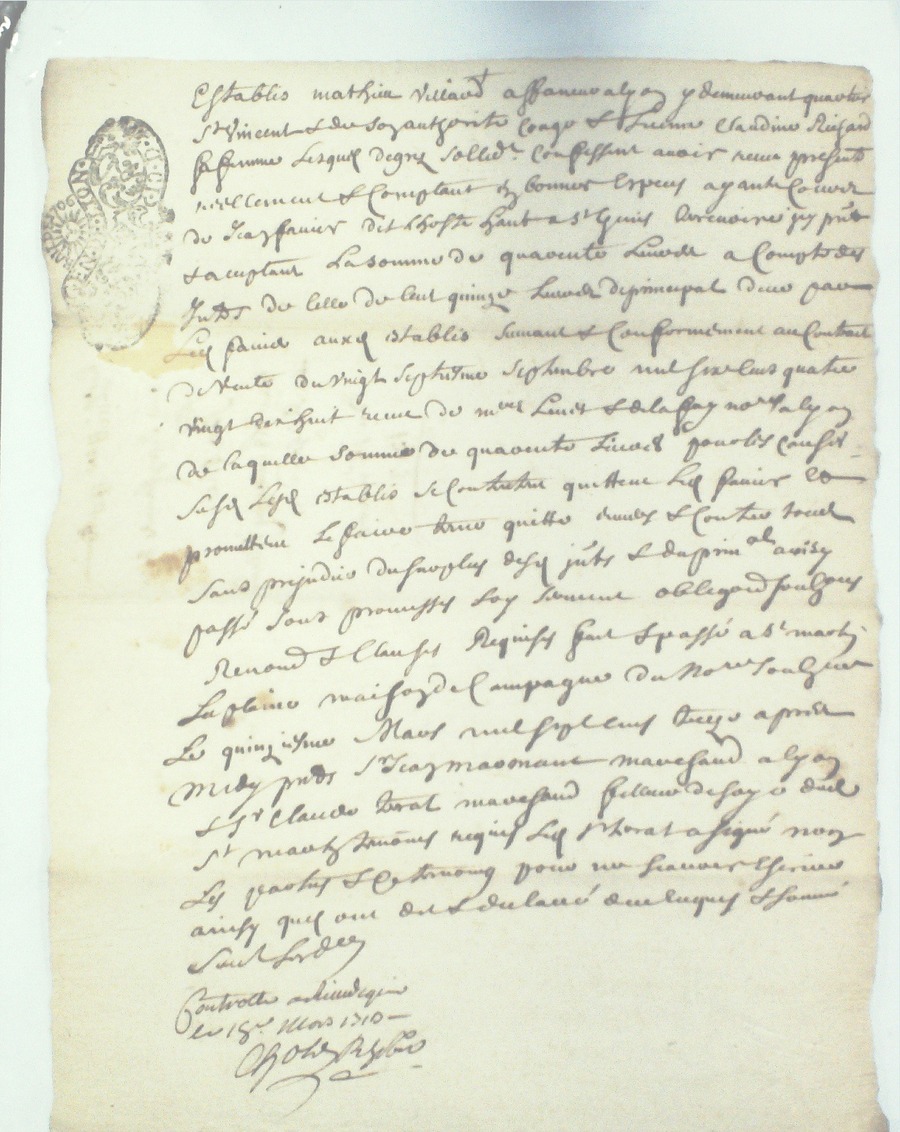 Establis mathieu Villard affaneur a lyon y demeurant quartier
St Vincent & de son authorité Congé & Licence Claudine Richard
sa femme Lesquels de gré sollidt. Confessent avoir receu presente
reellement & Comptant en bonnes Especes ayant Cours
de Jean favier dit Lhoste hant a St Genis terrenoire icy pnt
& aceptant La somme de quarente Livres a Compte des
Intts de Celle de Cent quinze Livres de principal deue par
Led favier auxd establis suivant & Conformement au Contract
de Vente du vingt septieme septembre mil six Cens quatre
vingt dix huit receu de mes & delafay nores a lyon
de laquelle somme de quarente Livres pour les causes
susd Lesd establis se Contentent quittent Led favier Et
promettent Le faire tenir quitte envers & Contre tous
sans prejudice du surplus desd jnts & du prinal ainsy
passé sous promesses foy serment obligaon soubzons
Renonon & Clauses Requises fait & passé a St martin
La plaine maison de Campagne du Nore soubzne
Le quinzieme Mars mil sept cens treize apres
midy pnts Sr Jean marchand a lyon
& Sr Claude terat marchand filleur de soye dud
St martin temoins requis Led Sr terat a signé non
Les parties & Ce temoing pour ne scavoir Escrire
ainsy quils ont dit & declaré de ce enquis & sommé
suivt Lordce
Controllé a Rivedegier
le 18e. Mars 1713